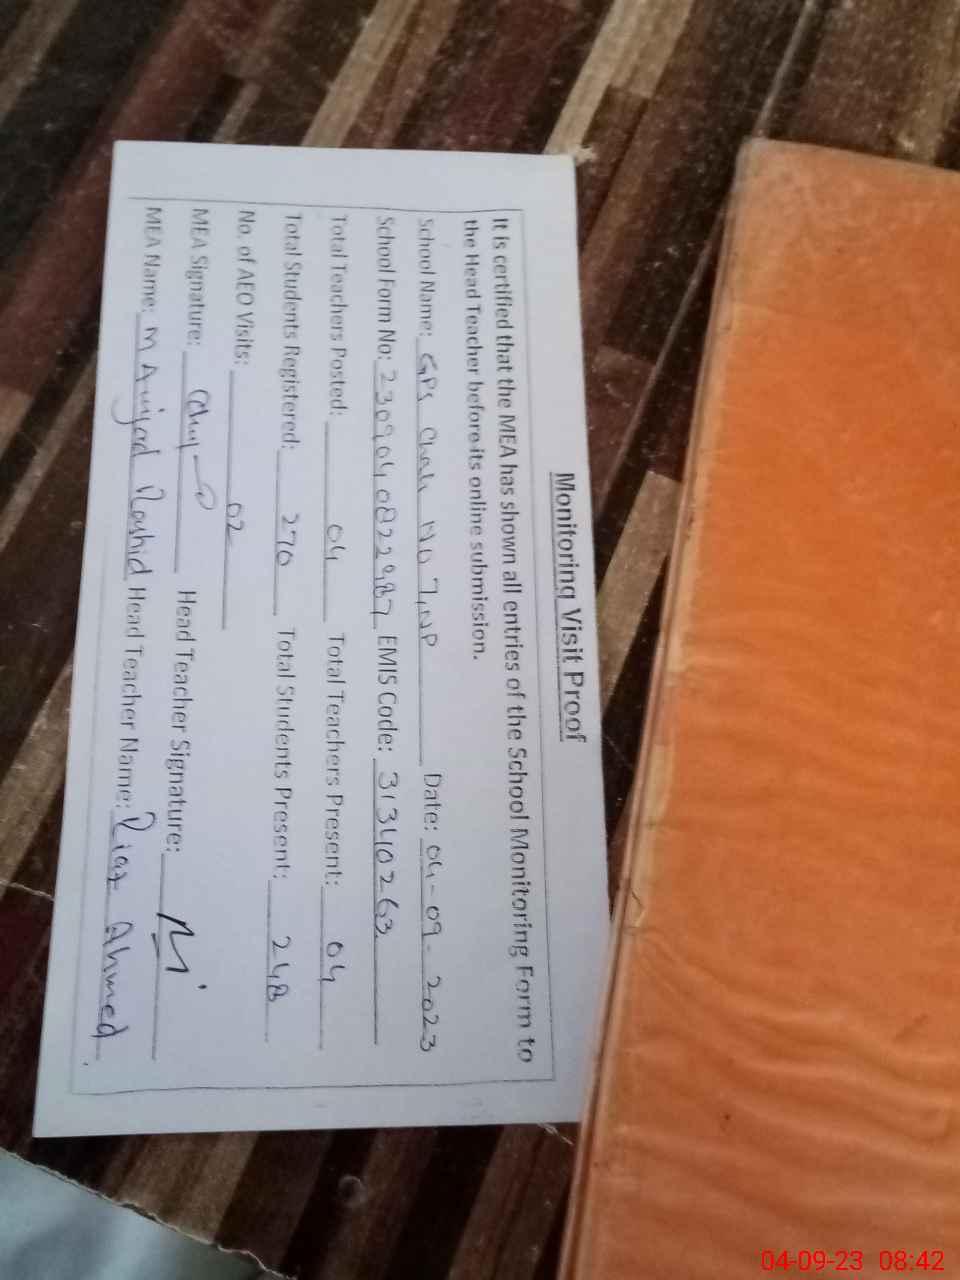 Monitoring Visit Proof
It is certified that the MEA has shown all entries of the School Monitoring Form to
the Head Teacher before its online submission.
School Name: GPS Chak No 7, NP Date: 04-09-2023
School Form No: 2309040822987 EMIS Code: 31340263
Total Teachers Posted: 04 Total Teachers Present: 04
Total Students Registered: 270 Total Students Present: 248
No. of AEO Visits: 02
MEA Signature: Head Teacher Signature:
MEA Name: M Amjad Rashid Head Teacher Name: Riaz Ahmed
04-09-23 08:42